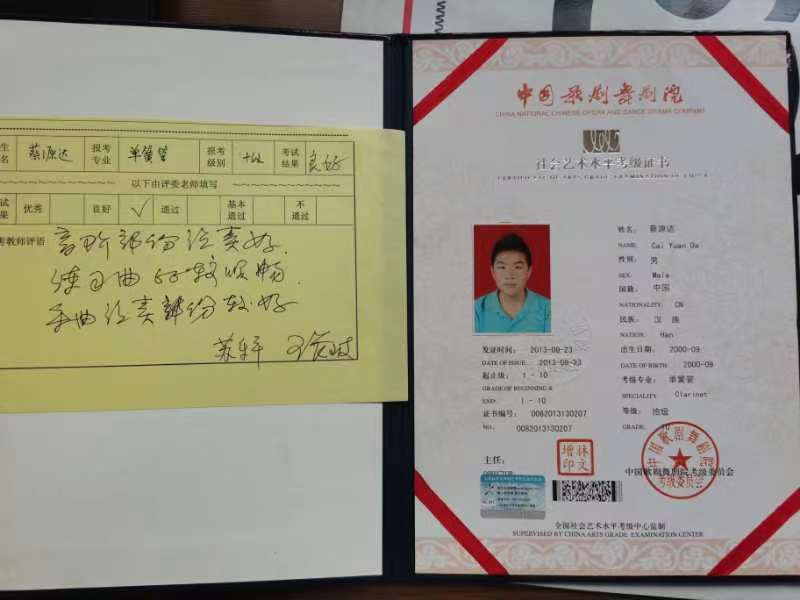 生 名 蔡源达 报考 专业 单簧管 报考 级别 十级 考试 结果 良好
以下由评委老师填写
试 果 优秀 良好 √ 通过 基本 通过 不 通过
考教师评语 音阶部份演奏好.
练习曲 较顺畅
乐曲演奏部份较好
中国歌剧舞剧院
CHINA NATIONAL CHINESE OPERA AND DANCE DRAMA COMPANY
社会艺术水平考级证书
姓名: 蔡源达
NAME: Cai Yuan Da
性别: 男
SEX: Male
国籍: 中国
NATIONALITY: CN
民族: 汉族
NATION: Han
出生日期: 2000-09
DATE OF BIRTH: 2000-09
考级专业: 单簧管
SPECIALITY: Clarinet
等级: 拾级
GRADE: 10
发证时间: 2013-08-23
DATE OF ISSUE: 2013-08-23
起止级: 1 - 10
GRADE OF BEGINING &
END: 1 - 10
证书编号: 0082013130207
NO. 0082013130207
主任:
增林印文
中国歌剧舞剧院考级委员会
中国歌剧舞剧院
考级委员会
全国社会艺术水平考级中心监制
SUPERVISED BY CHINA ARTS GRADE EXAMINATION CENTER